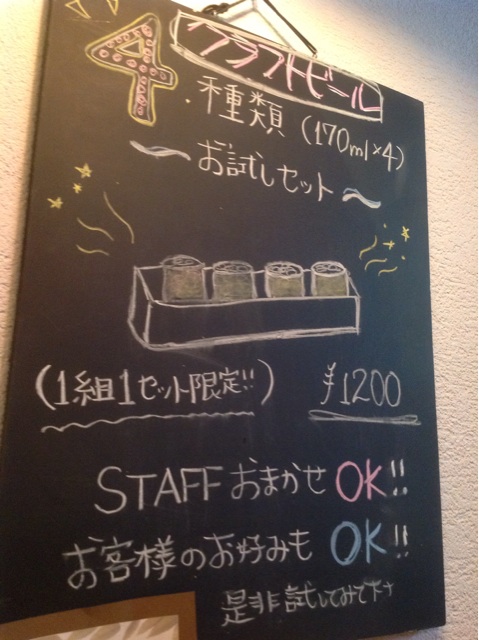 クラフトビール
4種類(170ml×4)
〜お試しセット〜
(1組1セット限定!!) ¥1200
STAFFおまかせOK!!
お客様のお好みもOK!!
是非試してみて下さ